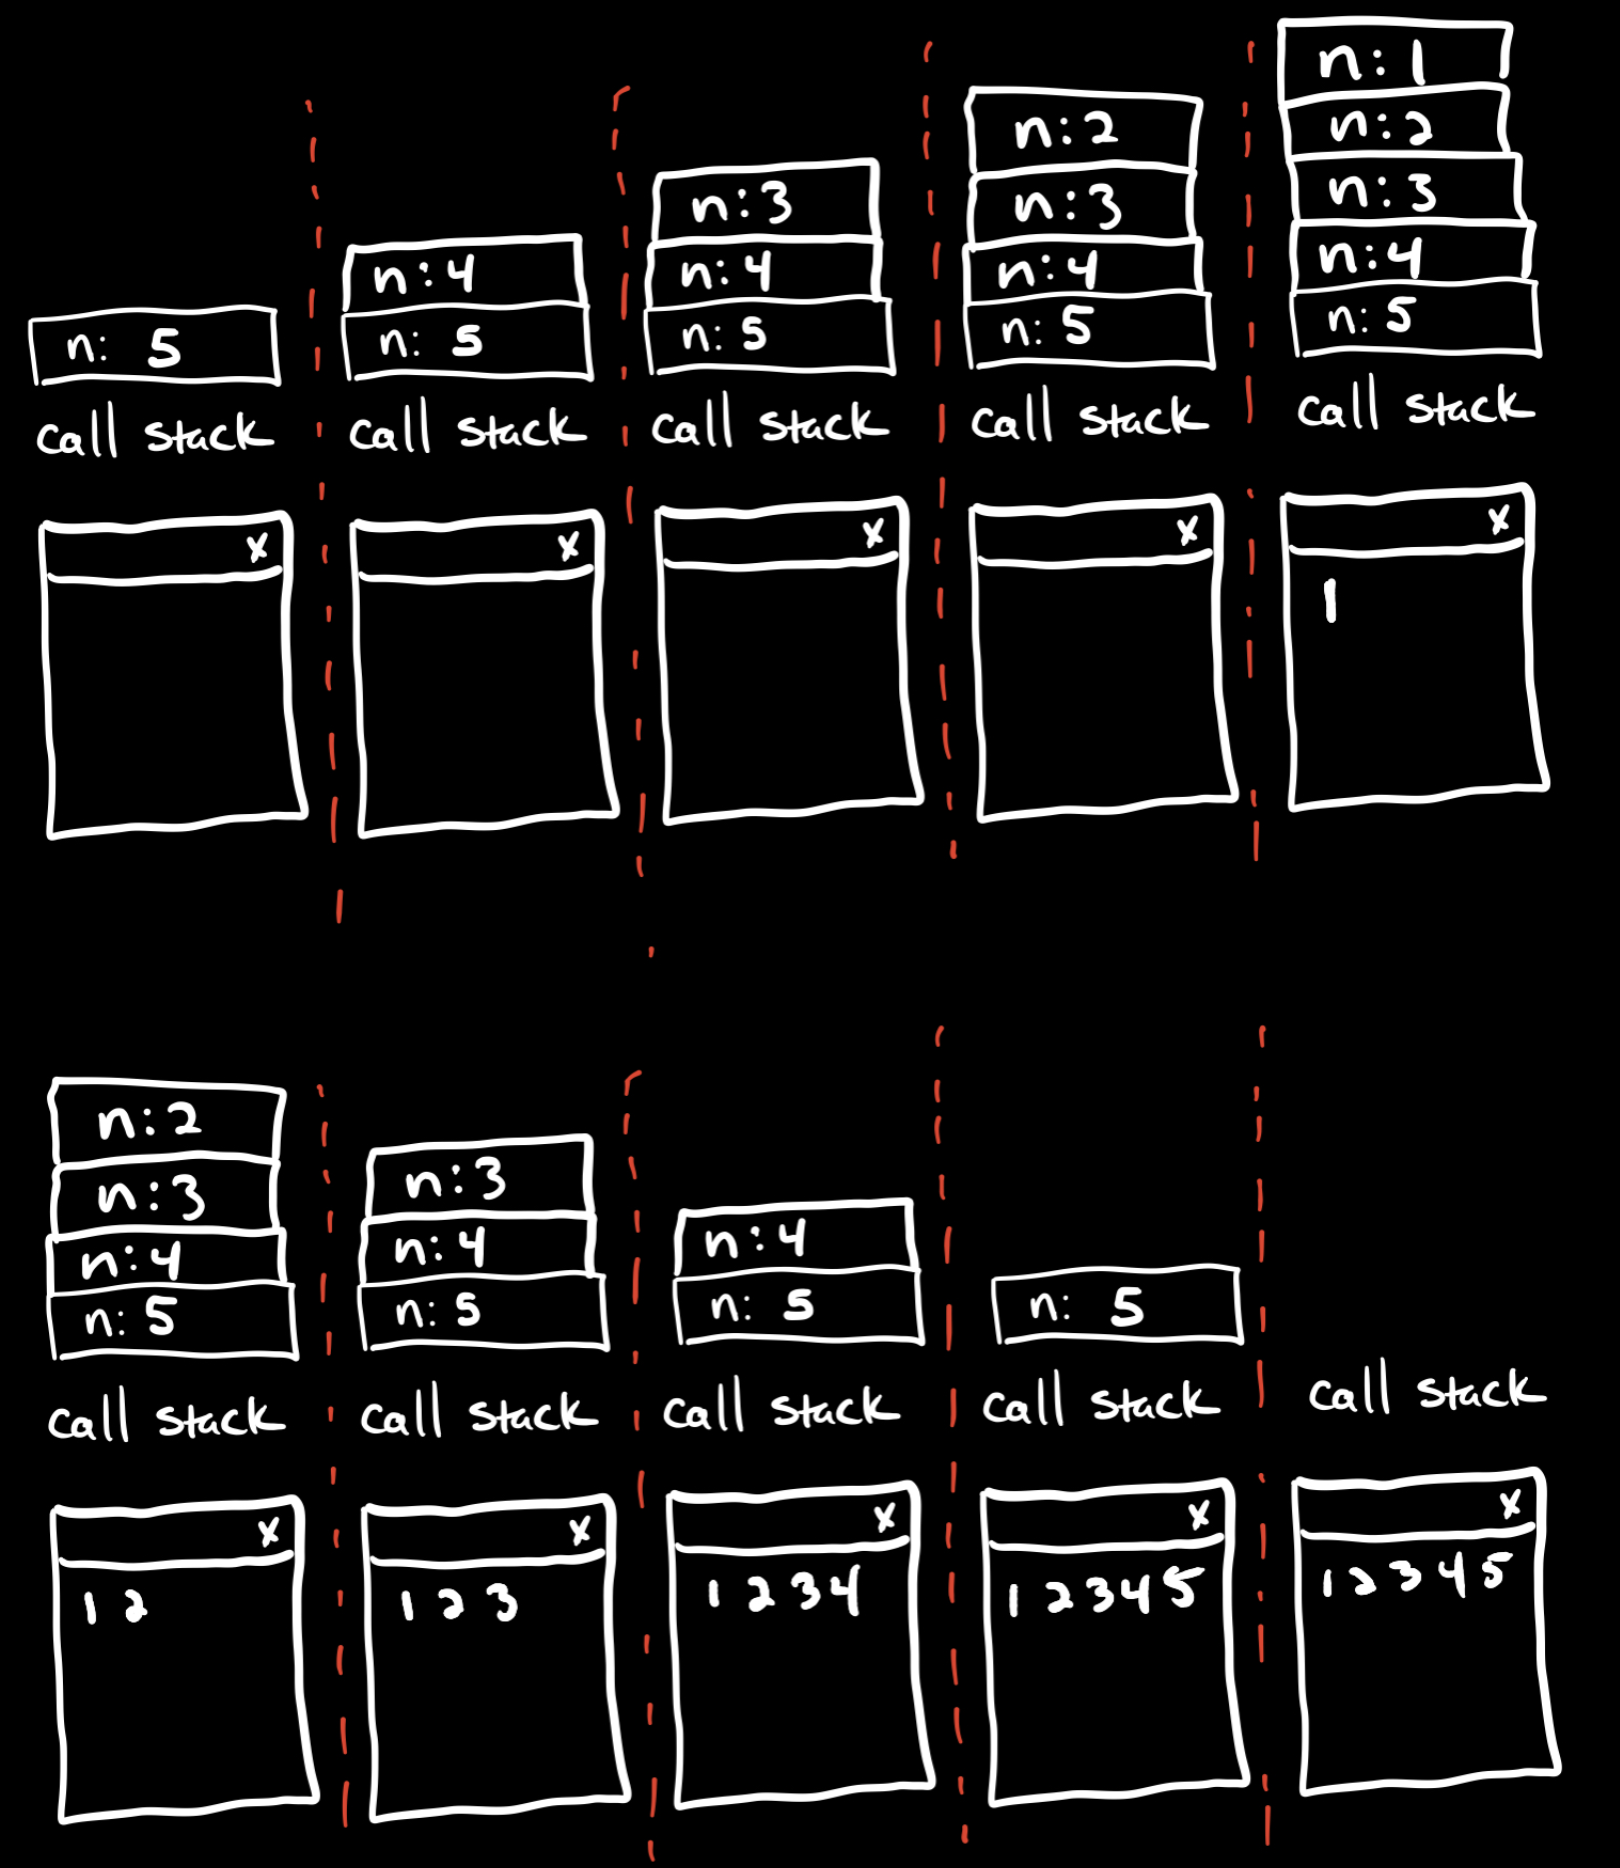 n: 5
call stack
x
n: 4
n: 5
call stack
x
n: 3
n: 4
n: 5
call stack
x
n: 2
n: 3
n: 4
n: 5
call stack
x
n: 1
n: 2
n: 3
n: 4
n: 5
call stack
x
1
n: 2
n: 3
n: 4
n: 5
call stack
x
1 2
n: 3
n: 4
n: 5
call stack
x
1 2 3
n: 4
n: 5
call stack
x
1 2 3 4
n: 5
call stack
x
1 2 3 4 5
call stack
x
1 2 3 4 5